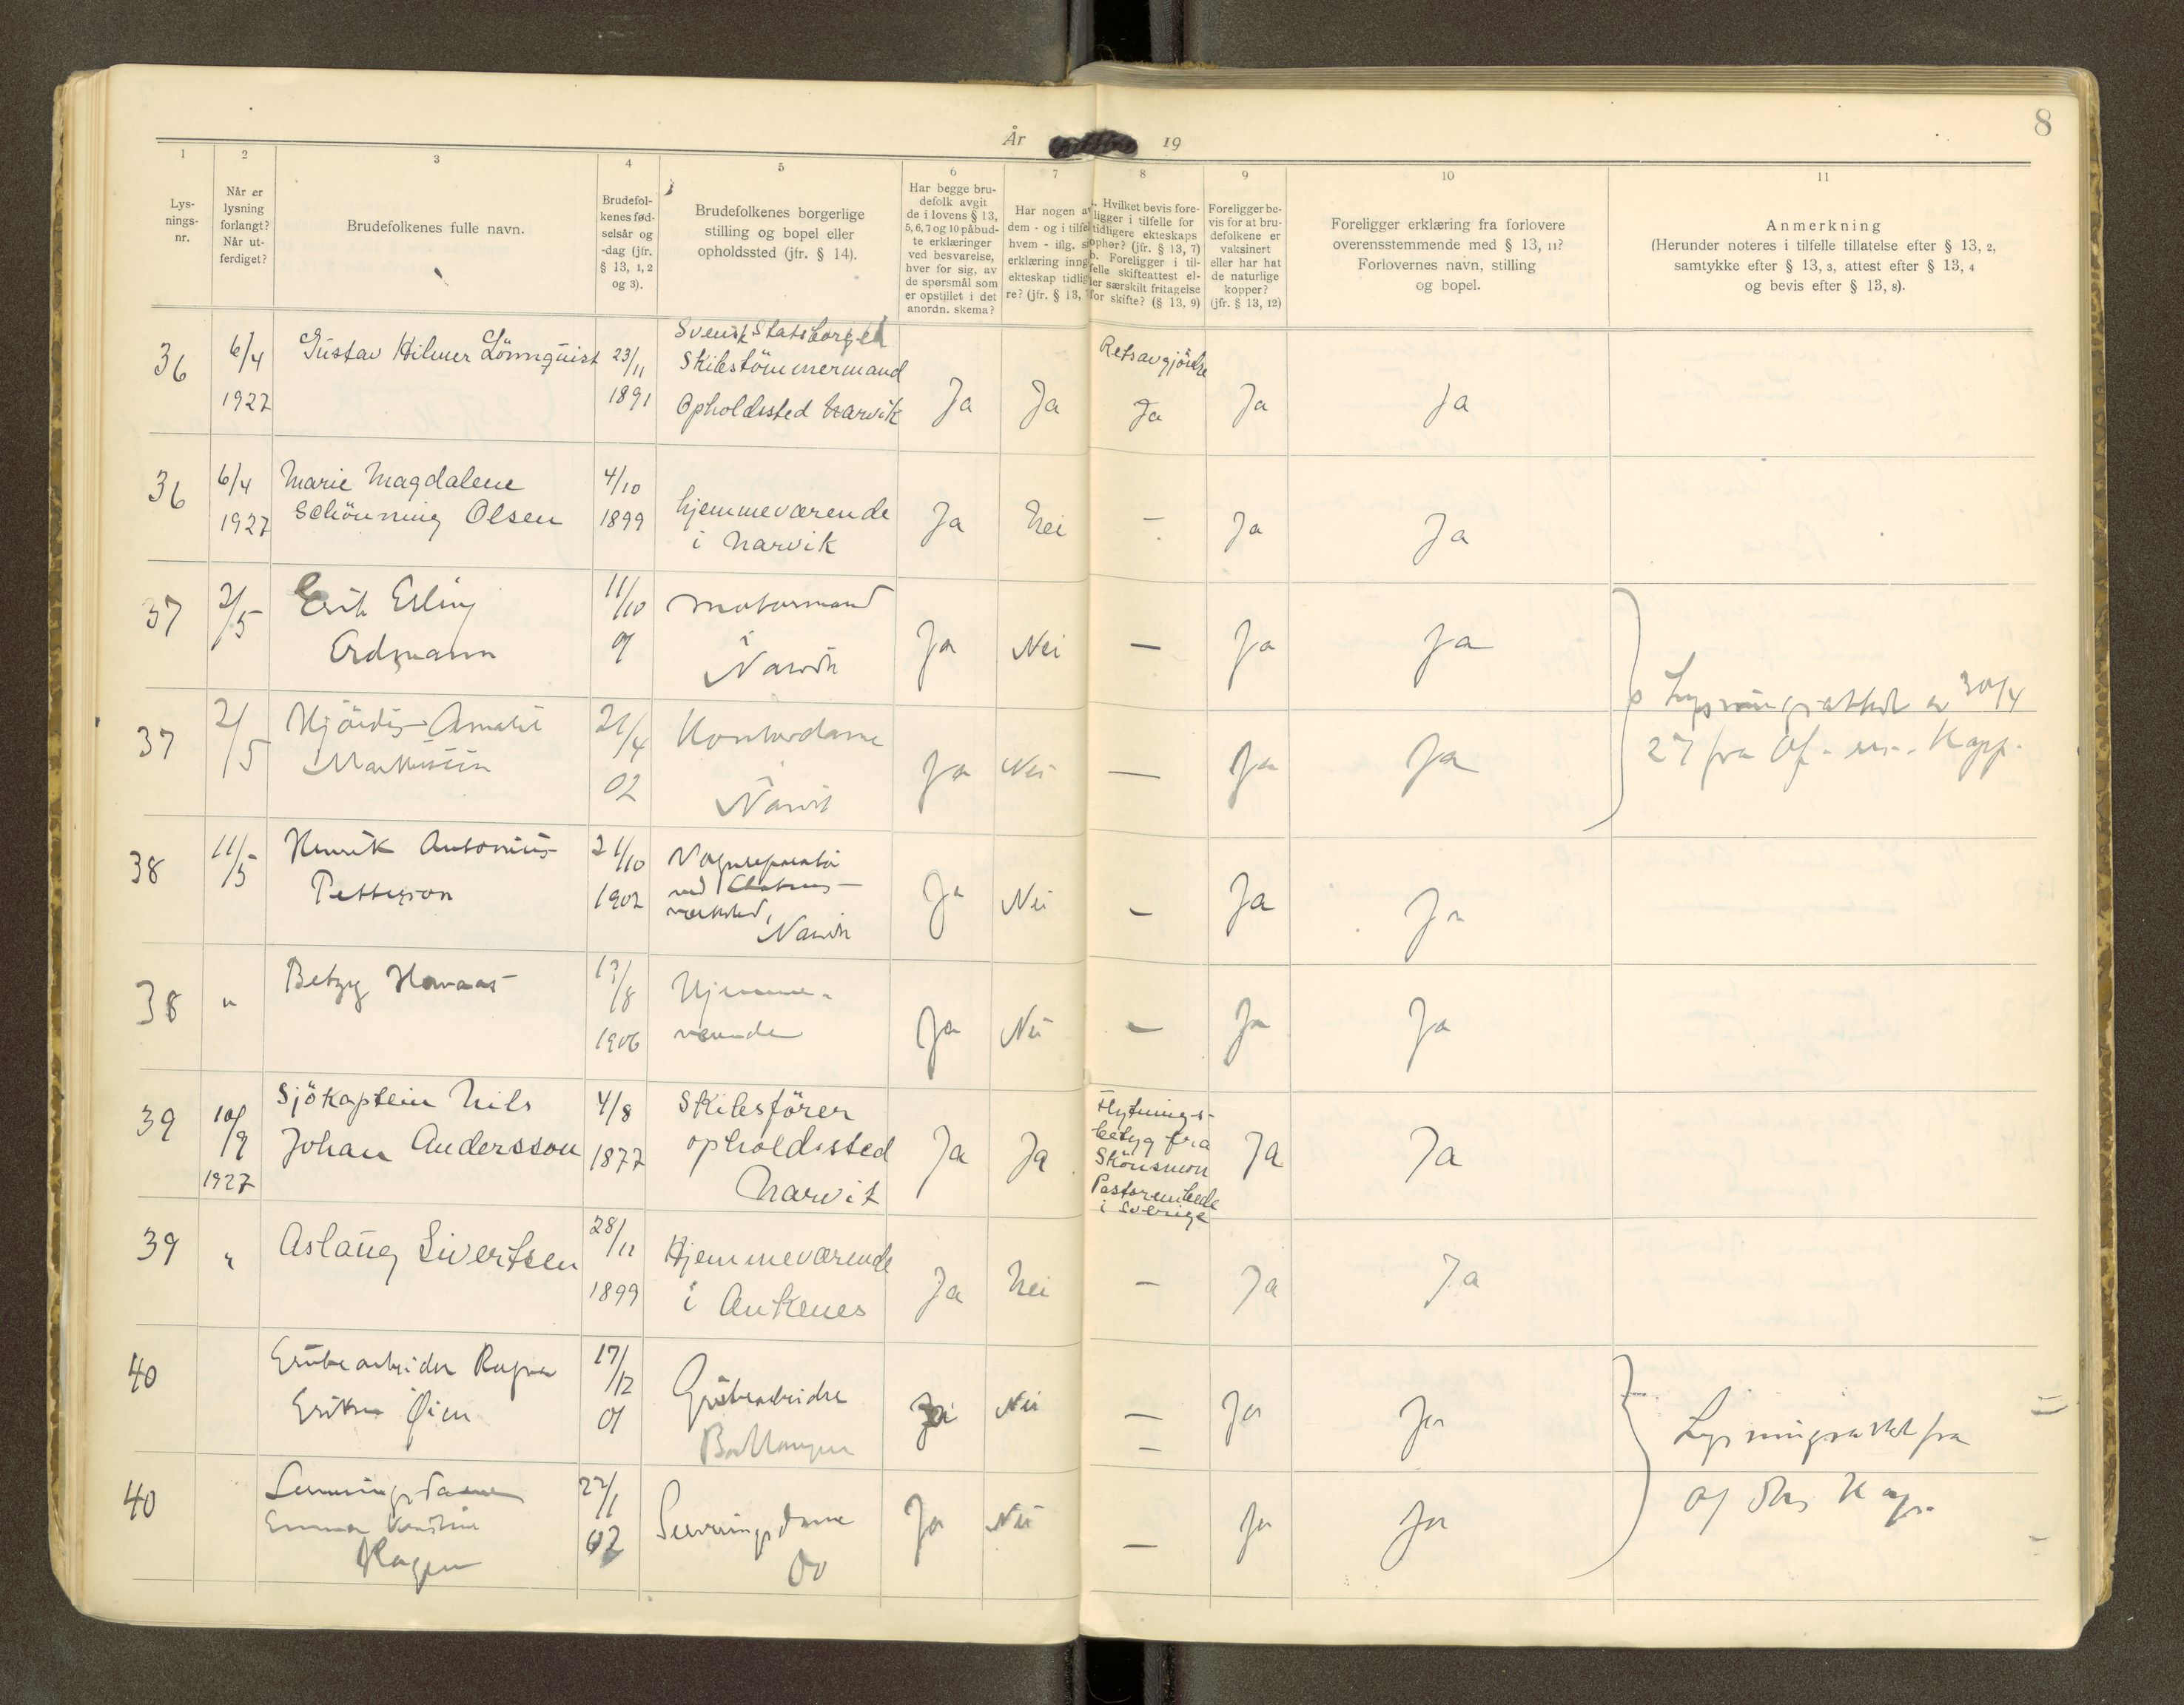 8
År 19
1 2 3 4 5 6 7 8 9 10 11
Lys-
nings-
nr.
Når er
lysning
forlangt?
Når ut-
ferdiget?
Brudefolkenes fulle navn.
Brudefol-
kenes fød-
selsår og
-dag (jfr.
§ 13, 1, 2
og 3).
Brudefolkenes borgerlige
stilling og bopel eller
opholdssted (jfr. § 14).
Har begge bru-
defolk avgit
de i lovens § 13,
5, 6, 7 og 10 påbud-
te erklæringer
ved besvarelse,
hver for sig, av
de spørsmål som
er opstillet i det
anordn. skema?
Har nogen av
dem - og i tilfel
hvem - iflg. s
erklæring inng
ekteskap tidlig
re? (jfr. § 13,
Hvilket bevis fore-
ligger i tilfelle for
tidligere ekteskaps
ophør? (jfr. § 13, 7)
b. Foreligger i til-
felle skifteattest el-
ler særskilt fritagelse
for skifte? (§ 13, 9)
Foreligger be-
vis for at bru-
defolkene er
vaksinert
eller har hat
de naturlige
kopper?
(jfr. § 13, 12)
Foreligger erklæring fra forlovere
overensstemmende med § 13, 11?
Forlovernes navn, stilling
og bopel.
Anmerkning
(Herunder noteres i tilfelle tillatelse efter § 13, 2,
samtykke efter § 13, 3, attest efter § 13, 4
og bevis efter § 13, 8).
36
6/4
1927
Gustav Hilmer Lönnquist
23/11
1891
Svensk Statsborger
Skibstömmermand
Opholdssted Narvik
Ja
Ja
Retsavgjörelse
Ja
Ja
Ja
36
6/4
1927
Marie Magdalene
Schönning Olsen
4/10
1899
hjemmeværende
i Narvik
Ja
Nei
–
Ja
Ja
37
2/5
Erik Erling
Erdmann
11/10
01
motormand
i
Narvik
Ja
Nei
—
Ja
Ja
Lysningsattest av 30/4
27 fra Of- - Kapp.
37
2/5
Hjördis Amalie
21/4
02
Kontordame
Narvik
Ja
Nei
—
Ja
Ja
38
11/5
Henrik Antonius
Petterson
21/10
1902
Vognreparatør
ved
verksted,
Narvik
Ja
Nei
–
Ja
Ja
38
"
Betzy Havaas
1906
Hjemme-
værende
Ja
Nei
–
Ja
Ja
39
10/9
1927
Sjökaptein Nils
Johan Andersson
4/8
1877
Skibsförer
opholdssted
Narvik
Ja
Ja
Flytnings-
betyg fra
Skönsmon
Pastorembede
i Sverige
Ja
Ja
39
"
Aslaug Sivertsen
28/11
1899
Hjemmeværende
i Ankenes
Ja
Nei
–
Ja
Ja
40
Grubearbeider
Øien
17/12
01
Grubearbeider
Ballangen
Ja
Nei
–
–
Ja
Ja
Lysningsattest fra
40
Serveringsdame
Emma
Hagen
22/1
02
Serveringsdame
Do
Ja
Nei
–
Ja
Ja